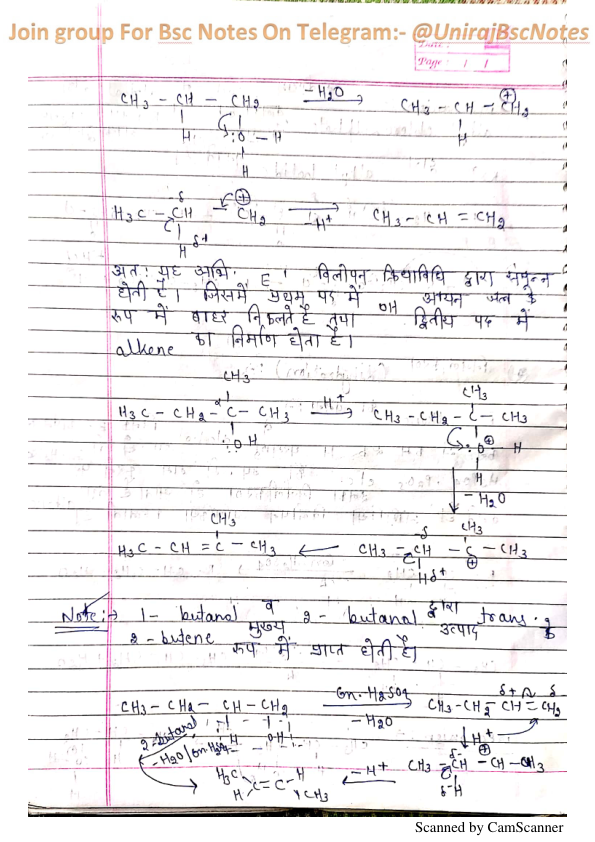 Join group For Bsc Notes On Telegram:- @UnirajBscNotes
Date :
Page : / /
CH3 - CH - CH2 -H2O CH3 - CH - CH2 ⊕
H :O - H H
H
H3C - CH - CH2 ⊕ -H+ CH3 - CH = CH2
-δ
H δ+
अतः यह अभि. E' विलोपन क्रियाविधि द्वारा संपन्न
होती है। जिसमें प्रथम पद में OH आयन जल के
रूप में बाहर निकलते है तथा द्वितीय पद में
alkene का निर्माण होता है।
CH3 CH3
H3C - CH2 - C - CH3 H+ CH3 - CH2 - C - CH3
:OH :O ⊕ - H
H
-H2O
CH3 δ CH3
H3C - CH = C - CH3 CH3 - CH - C - CH3
⊕
H δ+
Note:→ 1- butanol व 2- butanol द्वारा trans.
2- butene मुख्य उत्पाद के
रूप में प्राप्त होती है।
CH3 - CH2 - CH - CH2 Cn. H2SO4 CH3-CH2-CH=CH2
-H2O δ+ δ
H OH H+
2-butanol
-H2O/Cn.H2SO4
H3C H -H+ CH3 - CH - CH - CH3
C = C δ- ⊕
H CH3 δ-H
Scanned by CamScanner